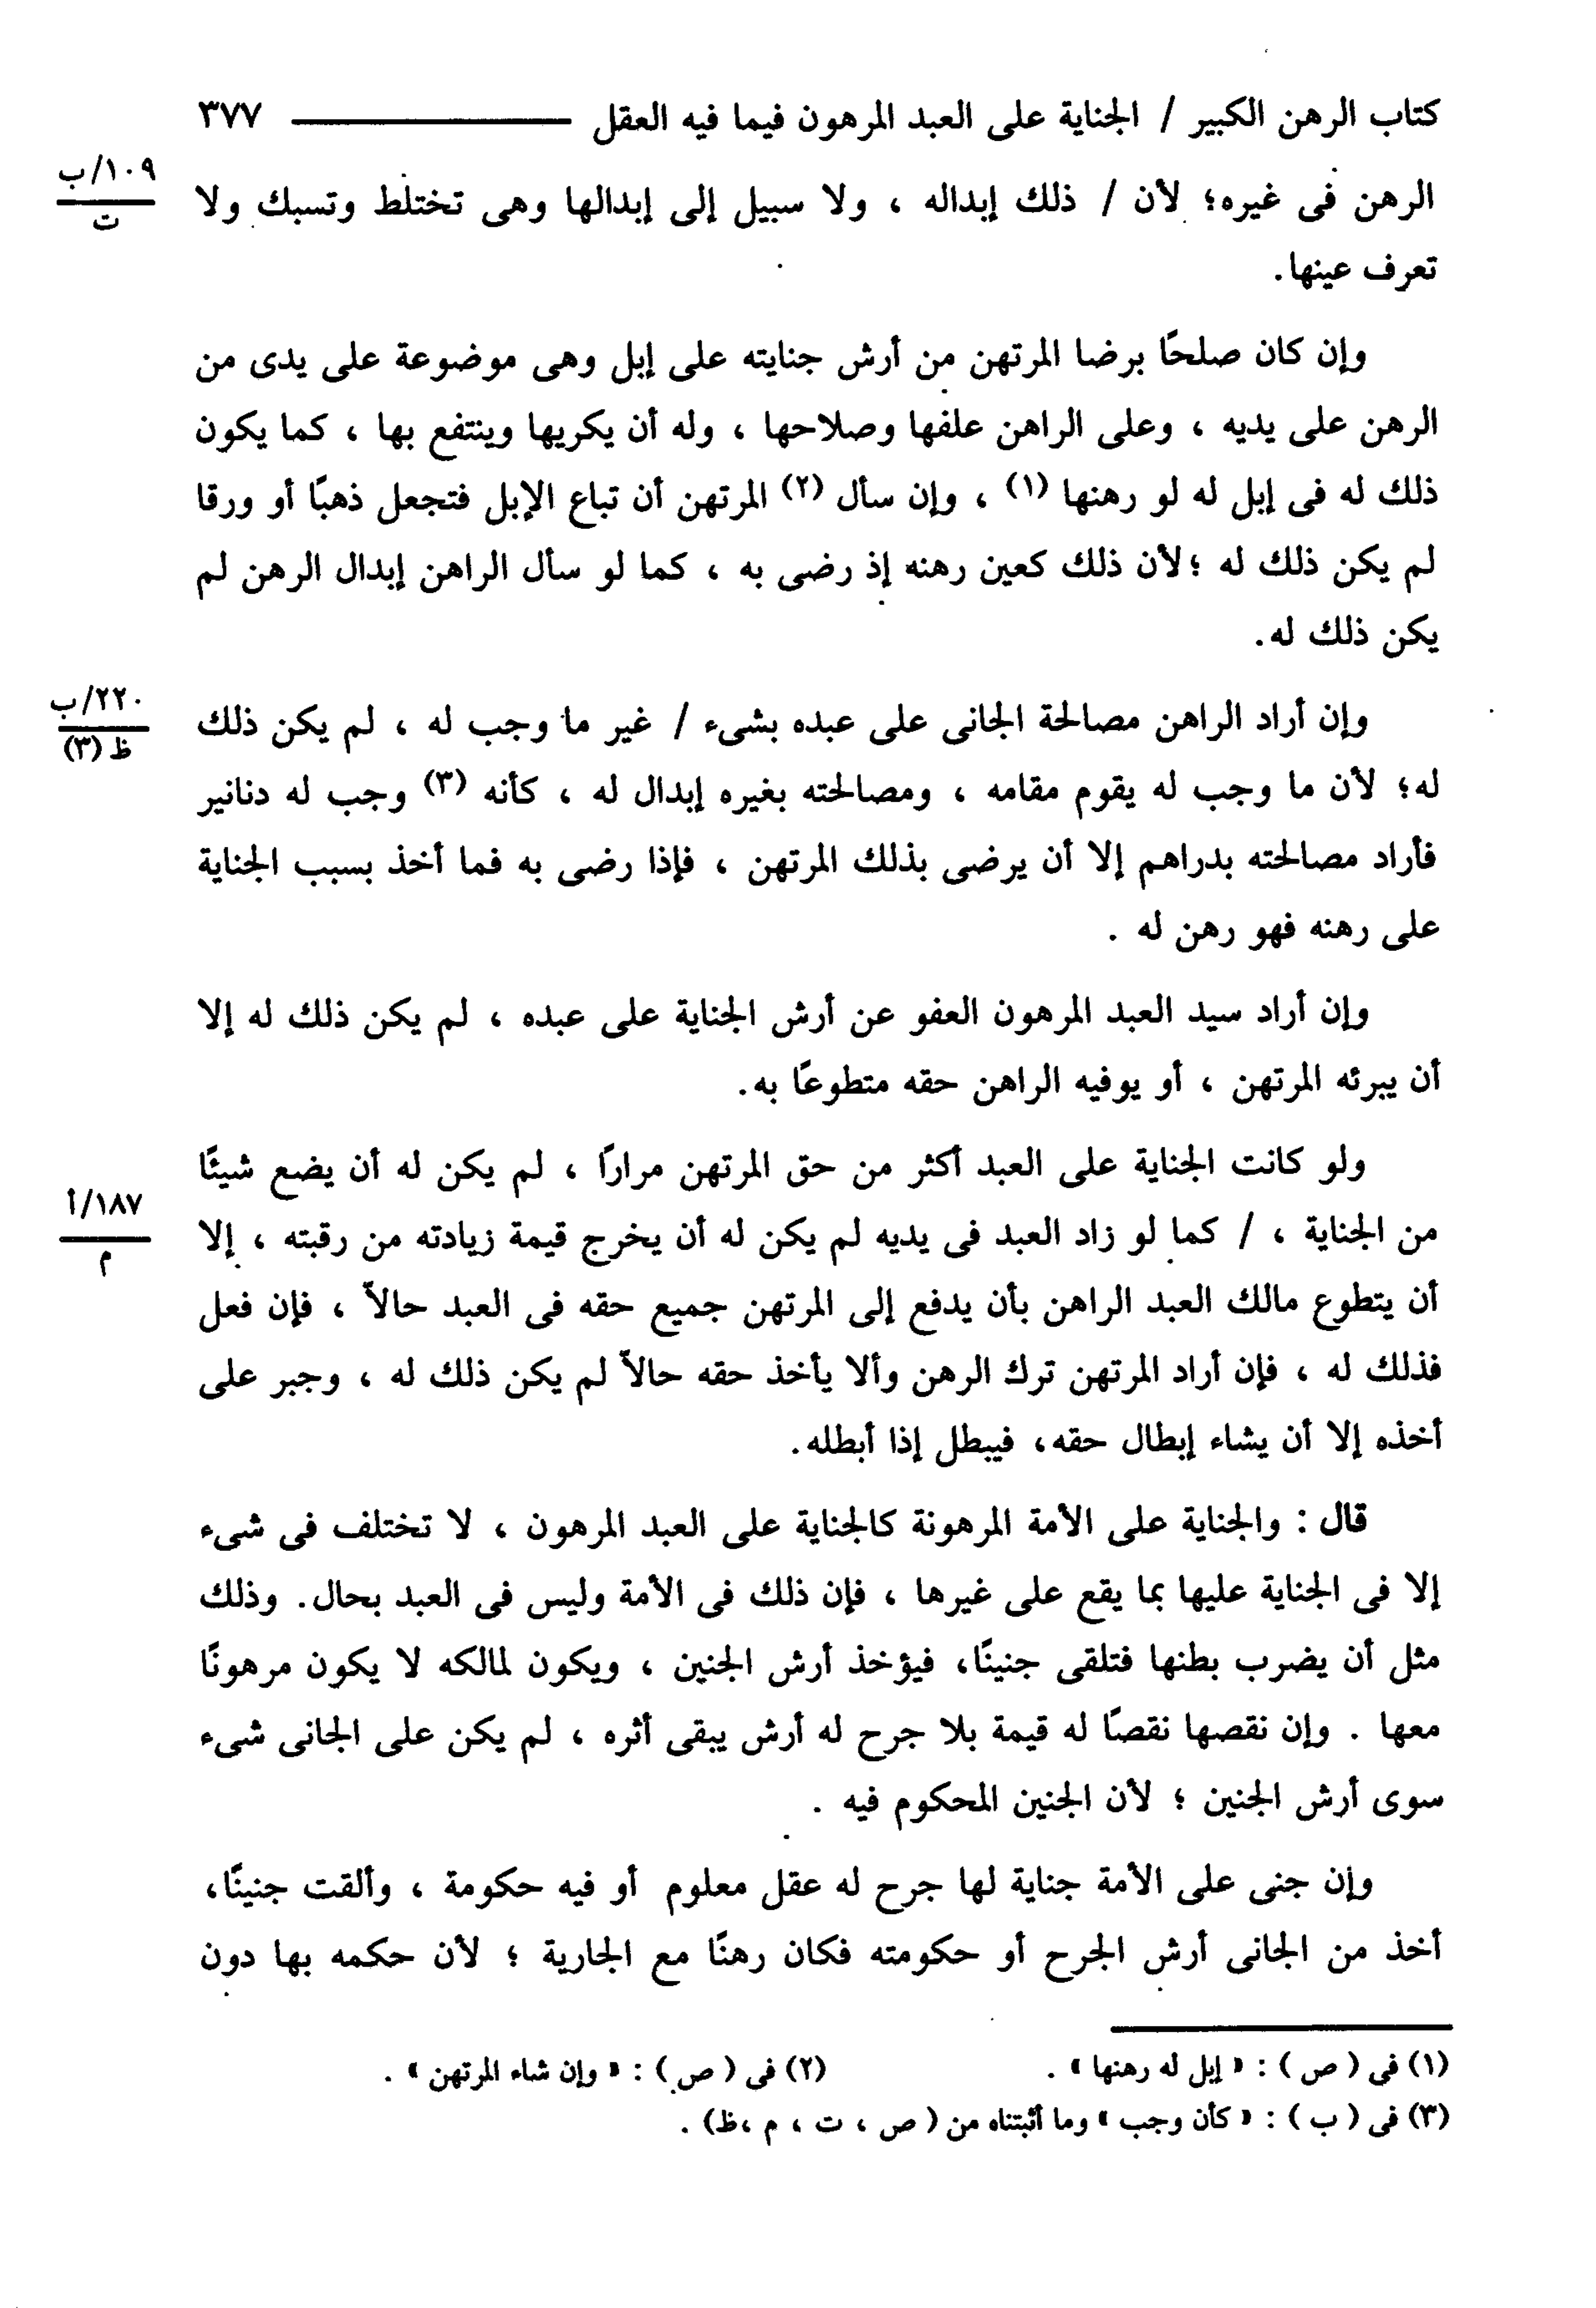 كتاب الرهن الكبير / الجناية على العبد المرهون فيما فيه العقل ٣٧٧
الرهن فى غيره؛ لأن / ذلك إبداله ، ولا سبيل إلى إبدالها وهى تختلط وتسبك ولا
١٠٩/ب
ت
تعرف عينها.
وإن كان صلحًا برضا المرتهن من أرش جنايته على إبل وهى موضوعة على يدى من
الرهن على يديه ، وعلى الراهن علفها وصلاحها ، وله أن يكريها وينتفع بها ، كما يكون
ذلك له فى إبل له لو رهنها (١) ، وإن سأل (٢) المرتهن أن تباع الإبل فتجعل ذهبًا أو ورقا
لم يكن ذلك له ؛لأن ذلك كعين رهنه إذ رضى به ، كما لو سأل الراهن إبدال الرهن لم
يكن ذلك له.
وإن أراد الراهن مصالحة الجانى على عبده بشىء / غير ما وجب له ، لم يكن ذلك
٢٢٠/ب
ظ (٣)
له؛ لأن ما وجب له يقوم مقامه ، ومصالحته بغيره إبدال له ، كأنه (٣) وجب له دنانير
فأراد مصالحته بدراهم إلا أن يرضى بذلك المرتهن ، فإذا رضى به فما أخذ بسبب الجناية
على رهنه فهو رهن له .
وإن أراد سيد العبد المرهون العفو عن أرش الجناية على عبده ، لم يكن ذلك له إلا
أن يبرئه المرتهن ، أو يوفيه الراهن حقه متطوعًا به.
ولو كانت الجناية على العبد أكثر من حق المرتهن مرارًا ، لم يكن له أن يضع شيئًا
من الجناية ، / كما لو زاد العبد فى يديه لم يكن له أن يخرج قيمة زيادته من رقبته ، إلا
١٨٧/أ
م
أن يتطوع مالك العبد الراهن بأن يدفع إلى المرتهن جميع حقه فى العبد حالاً ، فإن فعل
فذلك له ، فإن أراد المرتهن ترك الرهن وألا يأخذ حقه حالاً لم يكن ذلك له ، وجبر على
أخذه إلا أن يشاء إبطال حقه، فيبطل إذا أبطله.
قال : والجناية على الأمة المرهونة كالجناية على العبد المرهون ، لا تختلف فى شىء
إلا فى الجناية عليها بما يقع على غيرها ، فإن ذلك فى الأمة وليس فى العبد بحال. وذلك
مثل أن يضرب بطنها فتلقى جنينًا، فيؤخذ أرش الجنين ، ويكون لمالكه لا يكون مرهونًا
معها . وإن نقصها نقصًا له قيمة بلا جرح له أرش يبقى أثره ، لم يكن على الجانى شىء
سوى أرش الجنين ؛ لأن الجنين المحكوم فيه .
وإن جنى على الأمة جناية لها جرح له عقل معلوم أو فيه حكومة ، وألقت جنينًا،
أخذ من الجانى أرش الجرح أو حكومته فكان رهنًا مع الجارية ؛ لأن حكمه بها دون
(١) فى ( ص ) : « إبل له رهنها » . (٢) فى ( ص ) : « وإن شاء المرتهن » .
(٣) فى ( ب ) : « كأن وجب » وما أثبتناه من ( ص ، ت ، م ،ظ) .